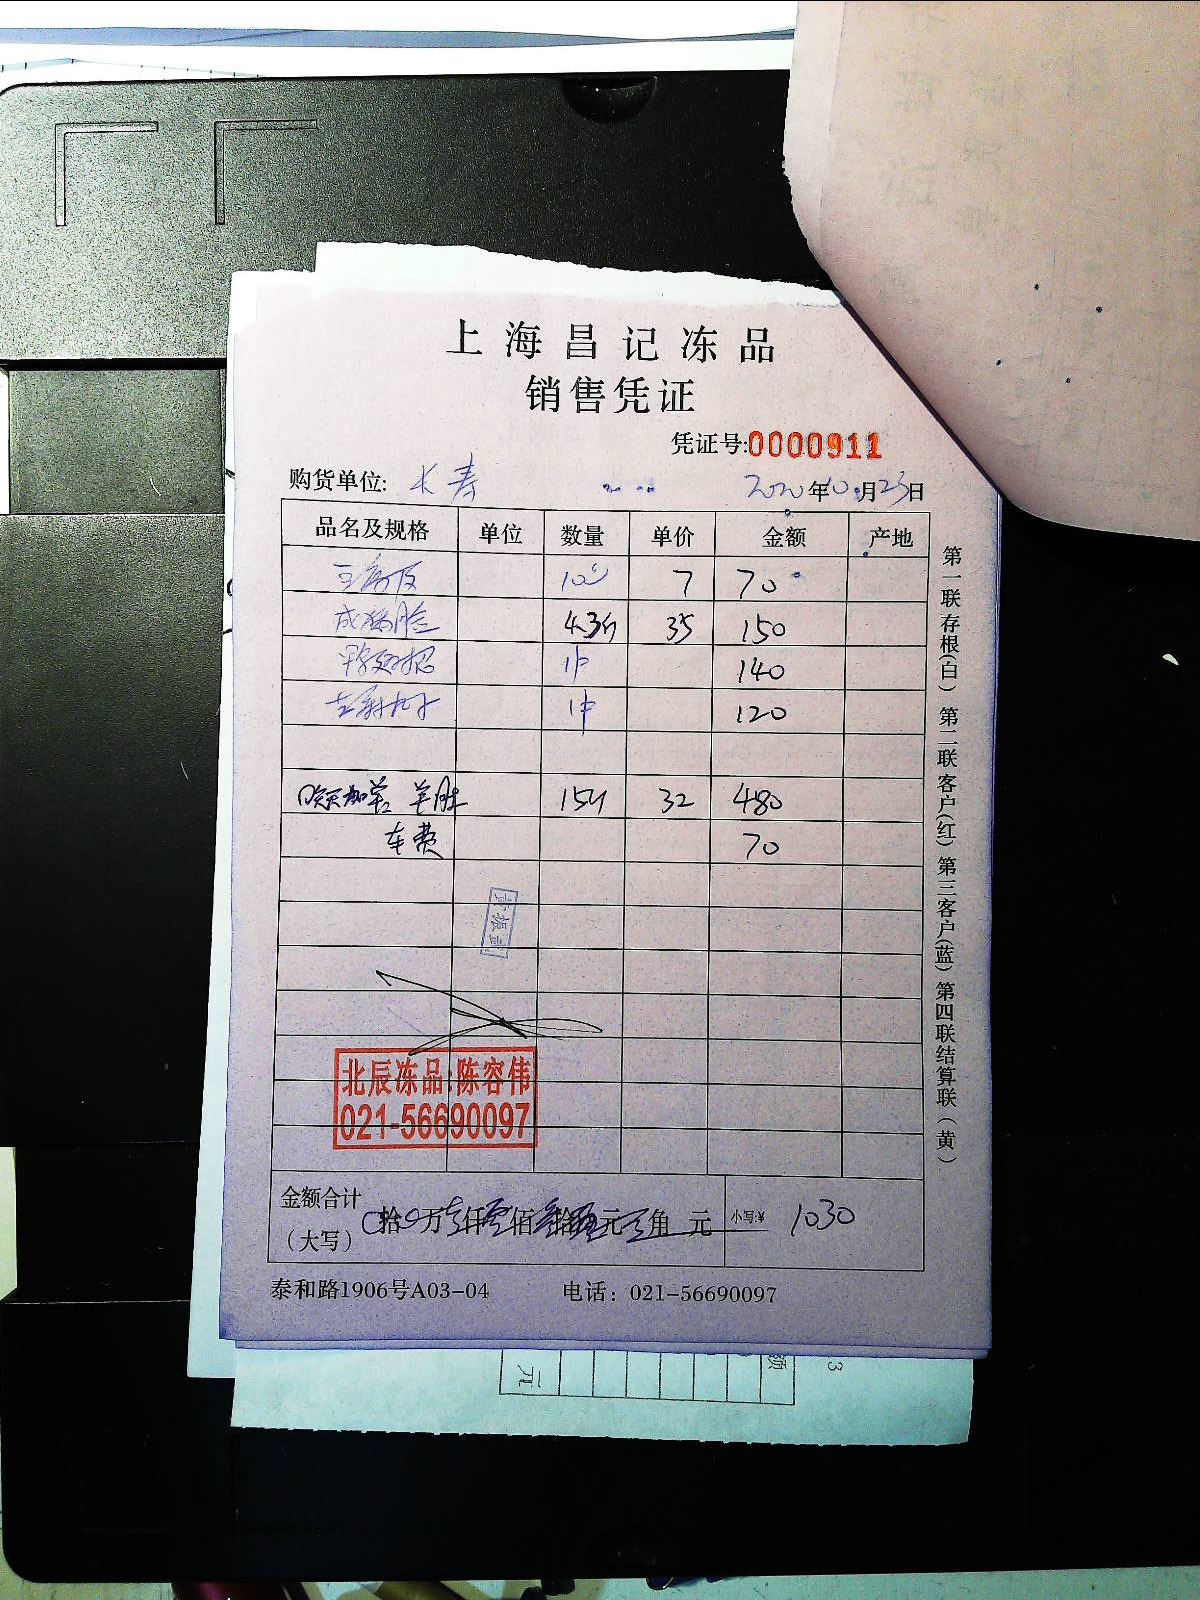 上海昌记冻品
销售凭证
凭证号:0000911
购货单位: 长寿 2020年10月23日
品名及规格 单位 数量 单价 金额 产地
豆腐皮 10 7 70
4.3斤 35 150
1件 140
1件 120
羊肚 15斤 32 480
车费 70
北辰冻品:陈容伟
021-56690097
金额合计
(大写) 拾 万 仟 佰 拾 元 角 元 小写:¥ 1030
泰和路1906号A03-04 电话: 021-56690097
第一联存根(白) 第二联客户(红) 第三客户(蓝) 第四联结算联(黄)
额
元
3